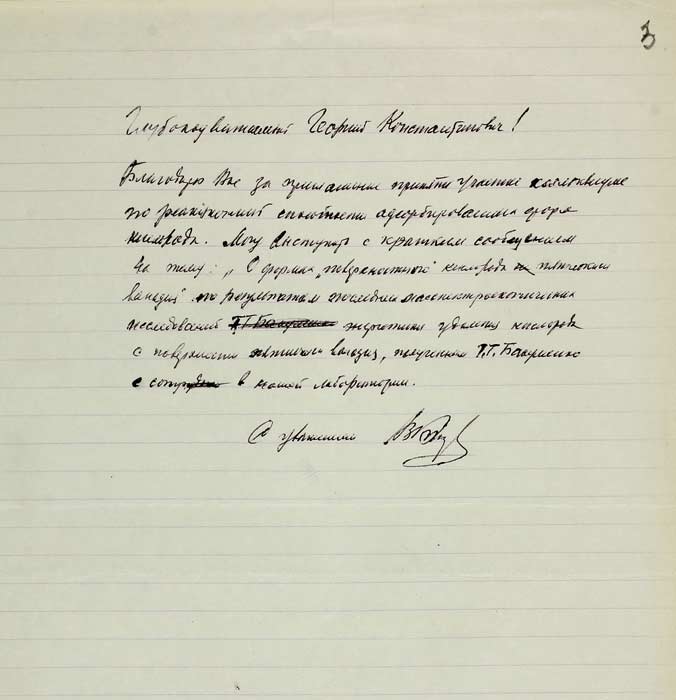 3
Глубокоуважаемый Георгий Константинович!
Благодарю Вас за приглашение принять участие коллоквиуме
по реакционной способности адсорбированных форм
кислорода. Могу выступить с кратким сообщением
на тему: „О формах „поверхностного" кислорода на пятиокиси
ванадия" по результатам последних масспектроскопических
исследований Г.Г. Бакуменко энергетики удаления кислорода
с поверхности пятиокиси ванадия, полученным Т.Т. Бакуменко
с сотруд в нашей лаборатории.
С уважением